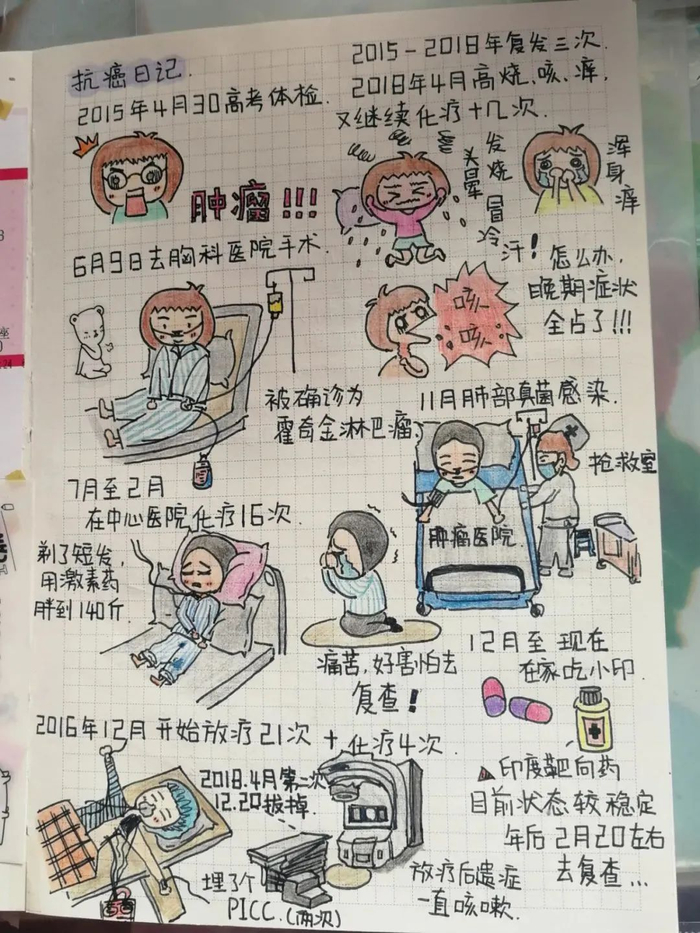 抗癌日记.
2015年4月30高考体检.
肿瘤!!!
6月9日去胸科医院手术.
被确诊为
霍奇金淋巴瘤.
7月至2月
在中心医院化疗16次.
剃了短发,
用激素药
胖到140斤.
痛苦,好害怕去
复查!
2016年12月开始放疗21次+化疗4次.
2018.4月第二次
12.20拔掉.
埋了个
PICC.(两次)
放疗后遗症
一直咳嗽.
2015-2018年复发三次.
2018年4月高烧、咳、痒,
又继续化疗十几次.
发烧
头晕
冒冷
汗!
浑身痒
咳
咳
怎么办,
晚期症状
全占了!!!
11月肺部真菌感染.
抢救室
肿瘤医院
12月至现在
在家吃小印.
▲印度靶向药
目前状态较稳定
年后2月20左右
去复查...